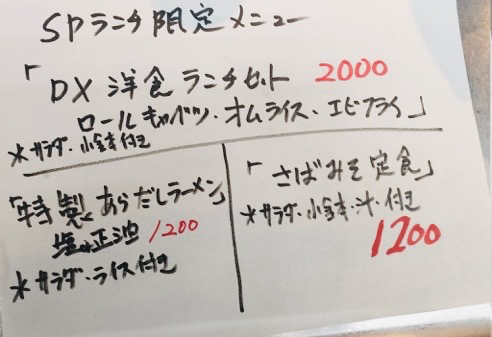 SPランチ限定メニュー
「DX 洋食ランチセット 2000
ロールキャベツ・オムライス・エビフライ」
*サラダ・小鉢付き
「特製あらだしラーメン」
塩or正油 1200
*サラダ・ライス付き
「さばみそ定食」
*サラダ・小鉢・汁・付き
1200